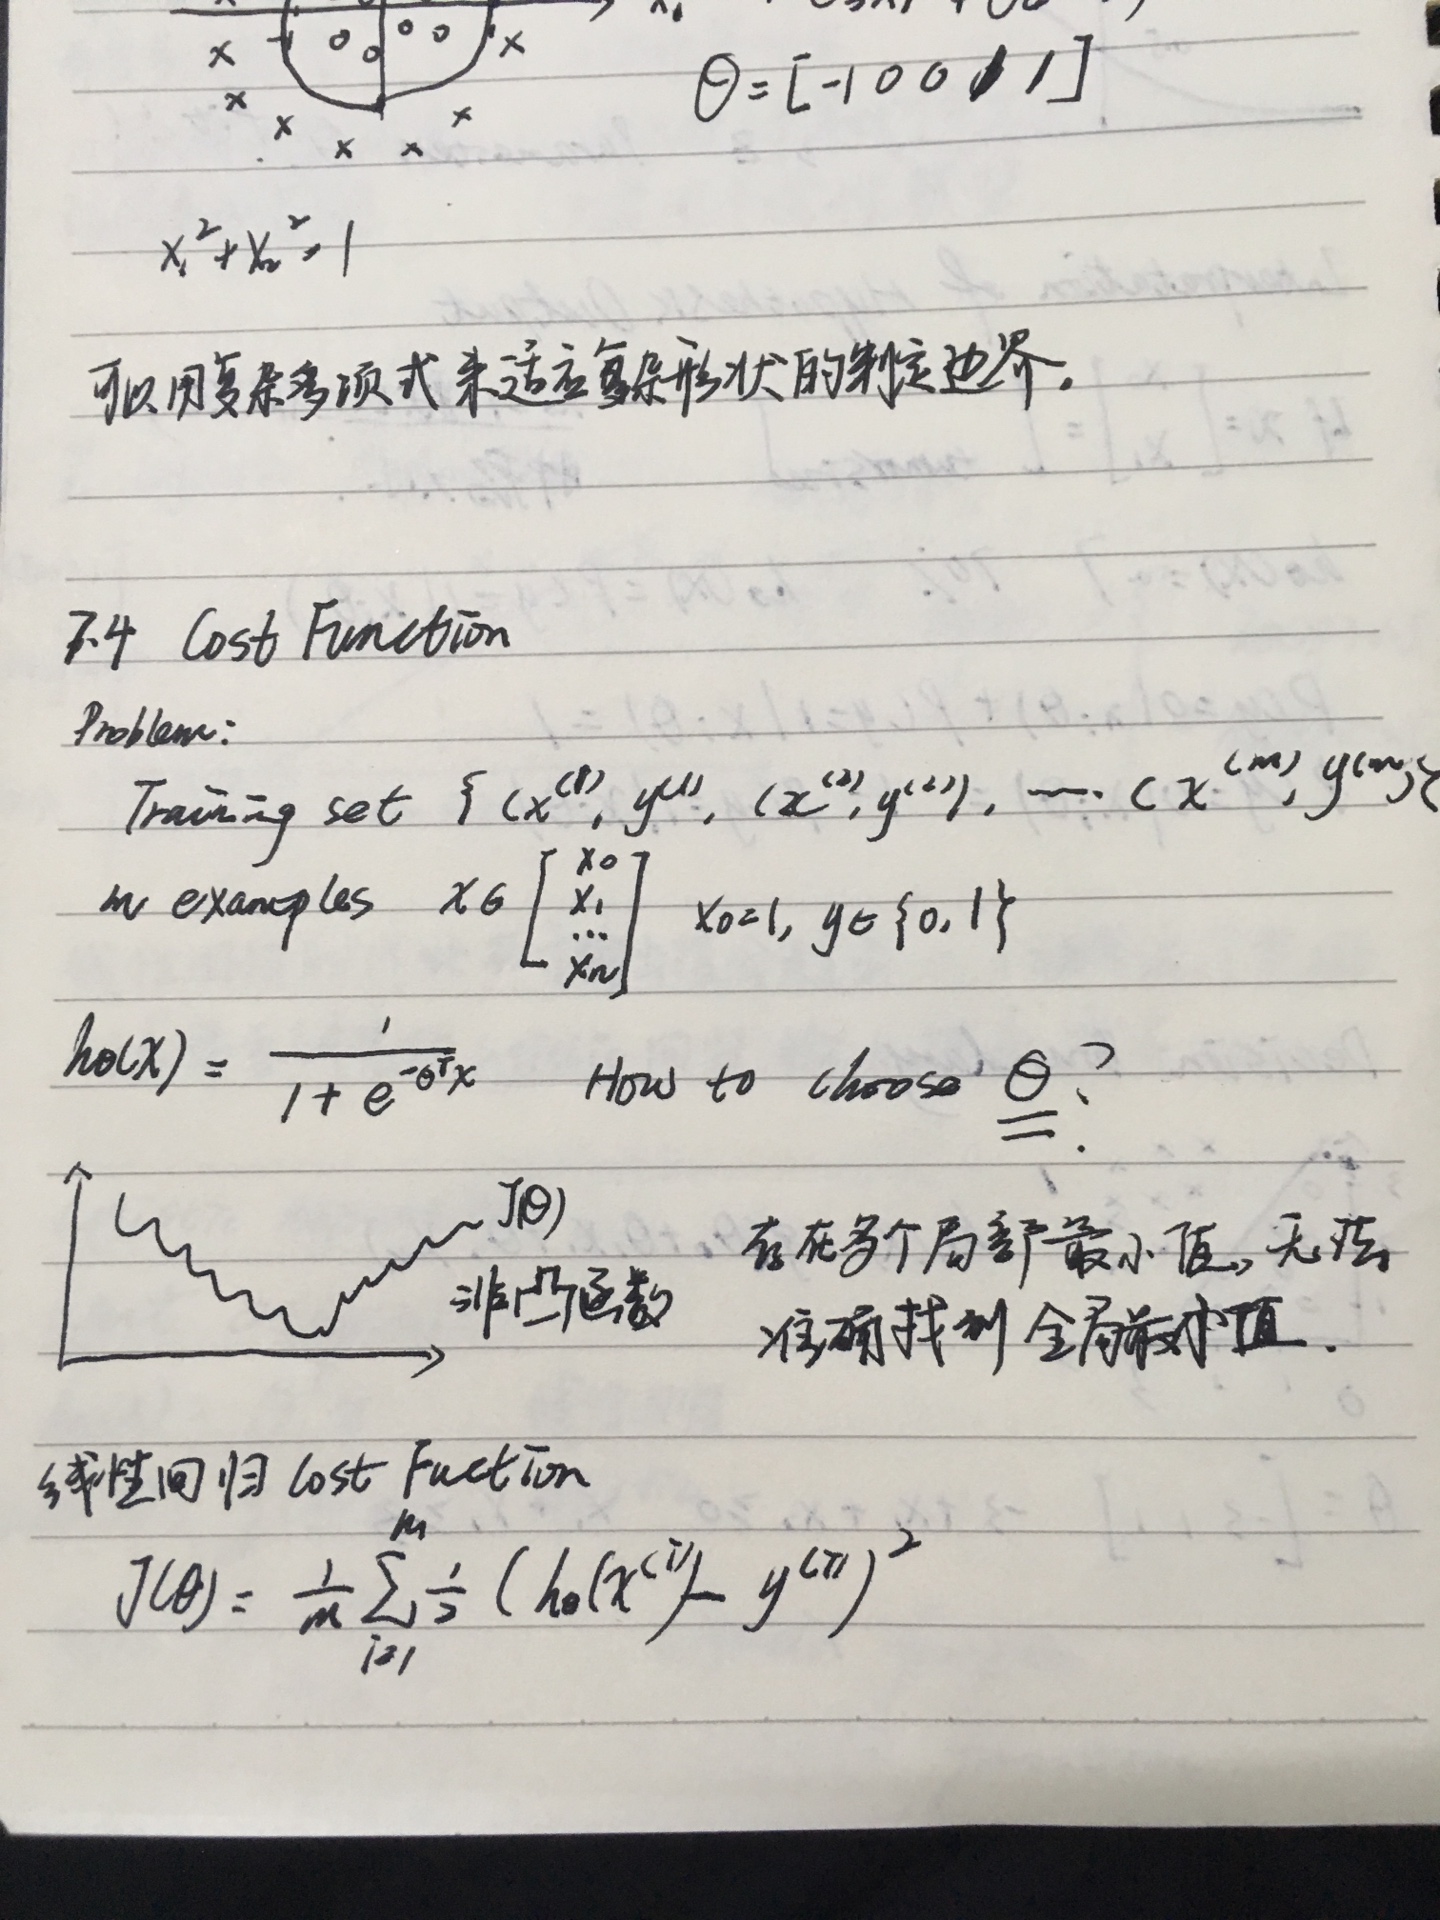 θ = [-1 0 0 1 1]
x₁² + x₂² = 1
可以用复杂多项式来适应复杂形状的判定边界。
7.4 Cost Function
Problem:
Training set {(x⁽¹⁾, y⁽¹⁾, (x⁽²⁾, y⁽²⁾), ···· (x⁽ᵐ⁾, y⁽ᵐ⁾}
m examples x∈ [x₀ x₁ ... xₙ] x₀=1, y∈{0,1}
hθ(x) = 1 / (1 + e^(-θᵀx)) How to choose θ?
J(θ)
非凸函数
存在多个局部最小值, 无法
准确找到全局最小值.
线性回归 Cost Fuction
J(θ) = 1/m ∑ᵢ₌₁ᵐ 1/2 (hθ(x⁽ⁱ⁾) - y⁽ⁱ⁾)²